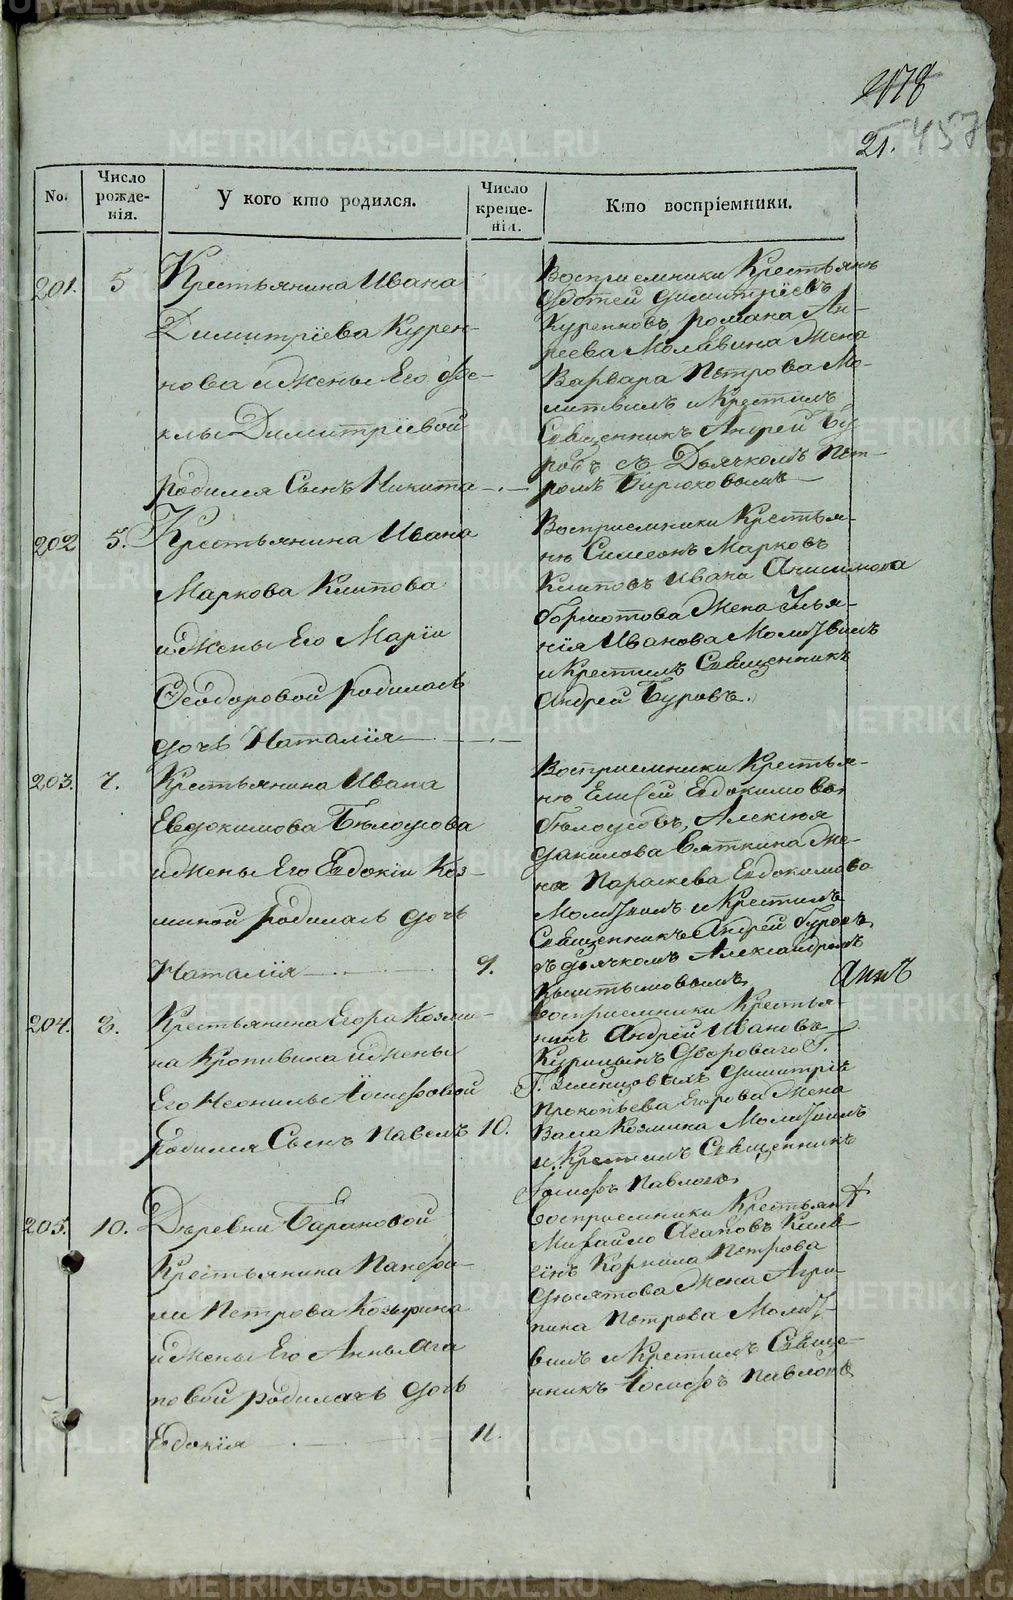 178
21. 457
No.
Число рожде- нія.
У кого кто родился.
Число креще- нія.
Кто воспріемники.
201. 5
Крестьянина Ивана
Димитріева Курен-
кова и жены Его Фе-
клы Димитріевой
родился Сынъ Никита
Восприемники Крестьянъ
Фотей Димитріевъ
Куренковъ, Романа Ан-
реева Молявина Жена
Варвара Петрова Мо-
литвилъ и Крестилъ
Священникъ Андрей Бу-
ровъ съ Дьячкомъ Пет-
ромъ Бирюковымъ
202 5.
Крестьянина Ивана
Маркова Клипова
и Жены Его Маріи
Феодоровой родилась
дочь Наталія
Восприемники Крестья-
не Симеонъ Марковъ
Клиповъ Ивана Анисимова
Бормотова Жена Улья-
нія Иванова Молитвилъ
и Крестилъ Священникъ
Андрей Буровъ.
203. 7.
Крестьянина Ивана
Евдокимова Бѣлоусова
и Жены Его Евдокіи Коз-
миной родилась дочь
Наталія 9.
Восприемники Крестья-
не Елисей Евдокимовъ
Бѣлоусовъ, Алексея
Данилова Вяткина Же-
на Параскева Евдокимова
Молитвилъ и Крестилъ
Священникъ Андрей Буровъ
съ дьячкомъ Александромъ
Кыштымовымъ
204. 3.
Крестьянина Егора Козми-
на Кропивина и жены
Его Неонилы Іосифовой
родился Сынъ Павелъ 10.
Восприемники Крестья-
нинъ Андрей Ивановъ
Курицынъ Двороваго Г.
Г. Зеленцовыхъ Димитрія
Прокопьева Егорова Жена
Васа Козмина Молитвилъ
и Крестилъ Священникъ
Іосифъ Павловъ
205. 10.
Деревни Барановой
Крестьянина Панфи-
ли Петрова Козырина
и Жены Его Анны Ага
повой родилась дочь
Евдокія 11.
Восприемники Крестьян
Михайло Агаповъ
Корнила Петрова
Жена Агри-
пина Петрова Молит-
вилъ и Крестилъ Свяще-
нникъ Іосифъ Павловъ